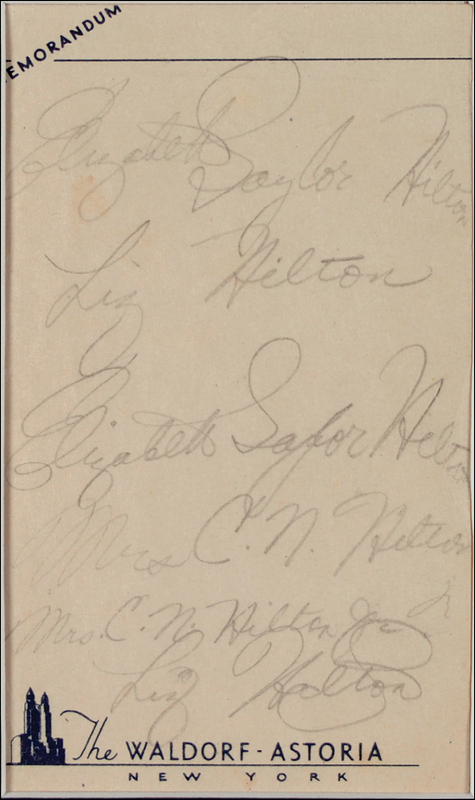 MEMORANDUM
Elizabeth Taylor Hilton
Liz Hilton
Elizabeth Taylor Hilton
Mrs C. N. Hilton
Jr
Mrs. C. N. Hilton Jr.
Liz Hilton
The WALDORF-ASTORIA
NEW YORK